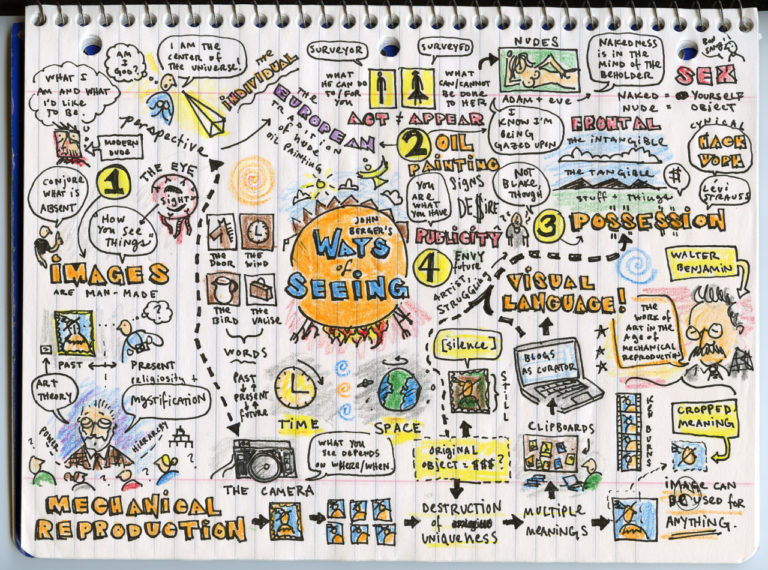 WHAT I
AM AND WHAT
I'D LIKE
TO BE.
AM
I
GOD?
I AM THE
CENTER OF
THE UNIVERSE!
MODERN
DUDE
perspective
THE
INDIVIDUAL
THE
EUROPEAN
TRADITION
of NUDE
OIL PAINTING
SURVEYOR
SURVEYED
WHAT
HE CAN DO
TO/FOR
YOU
WHAT
CAN/CANNOT
BE DONE
TO HER
ACT + APPEAR
NUDES
ADAM + eve
NAKEDNESS
IS IN THE
MIND OF THE
BEHOLDER
I
KNOW I'M
BEING
GAZED UPON
SEX
NAKED = YOURSELF
NUDE = OBJECT
FRONTAL
THE INTANGIBLE
THE TANGIBLE
STUFF + THINGS
CYNICAL
HACK
WORK
$
LÉVI
STRAUSS
1
CONJURE
WHAT IS
ABSENT
THE EYE
SIGHT
"HOW
YOU SEE
THINGS"
IMAGES
ARE MAN-MADE
2
OIL
PAINTING
YOU
ARE
WHAT
YOU HAVE
SIGNS
DE$IRE
NOT
BLAKE,
THOUGH
3
"POSSESSION"
PUBLICITY
4
ENVY
FUTURE
ARTIST,
STRUGGLING
JOHN
BERGER'S
WAYS
of
SEEING
THE
DOOR
THE
WIND
THE
BIRD
THE
VALISE
WORDS
PAST
PRESENT
FUTURE
TIME
SPACE
?
PAST
PRESENT
ART
THEORY
religiosity +
MYSTIFICATION
POWER
HIERARCHY
? ? ? ?
THE CAMERA
WHAT YOU
SEE DEPENDS
ON WHERE/WHEN.
VISUAL
LANGUAGE!
[silence]
STILL
BLOGS
AS CURATOR
CLIPBOARDS
WALTER
BENJAMIN
THE
WORK OF
ART IN THE
Age of
MECHANICAL
REPRODUCTION
KEN BURNS
CROPPED
MEANING
IMAGE CAN
BE USED FOR
ANYTHING.
ORIGINAL
OBJECT = $$$ ?
MECHANICAL
REPRODUCTION
DESTRUCTION
OF
UNIQUENESS
MULTIPLE
MEANINGS